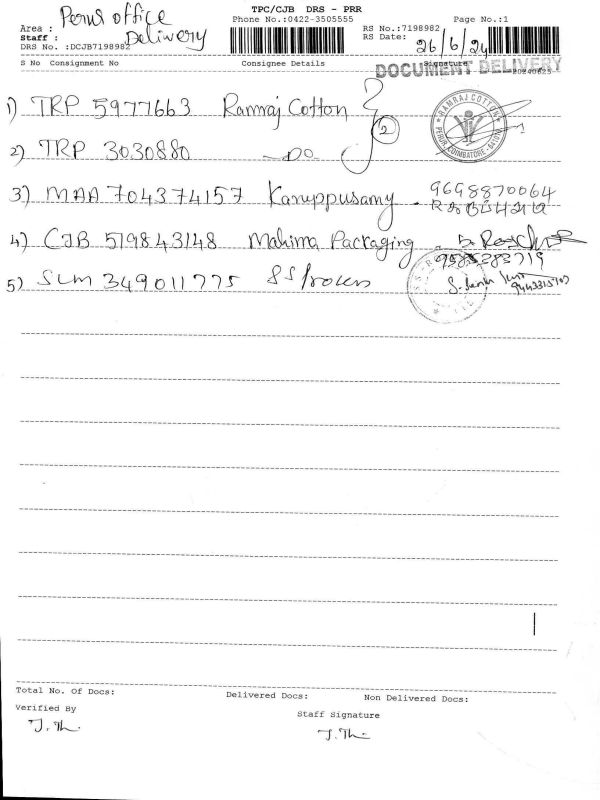 TPC/CJB DRS - PRR
Perur office
Delivery
Phone No.:0422-3505555
Page No.:1
Area :
Staff :
DRS No. :DCJB7198982
RS No.:7198982
RS Date:
26/6/24
S No Consignment No
Consignee Details
Signature
DOCUMENT DELIVERY
20240625
1) TRP 5977663 Ramraj Cotton
2) TRP 3030880 —DO—
2
RAMRAJ COTTON
PERUR, COIMBATORE
3) MAA 704374157 Karuppusamy - 9698870064
கருப்புசாமி
4) CJB 519843148 Mahima Packaging -
9585283719
5) SLM 349011775 SS
Total No. Of Docs:
Delivered Docs:
Non Delivered Docs:
Verified By
Staff Signature